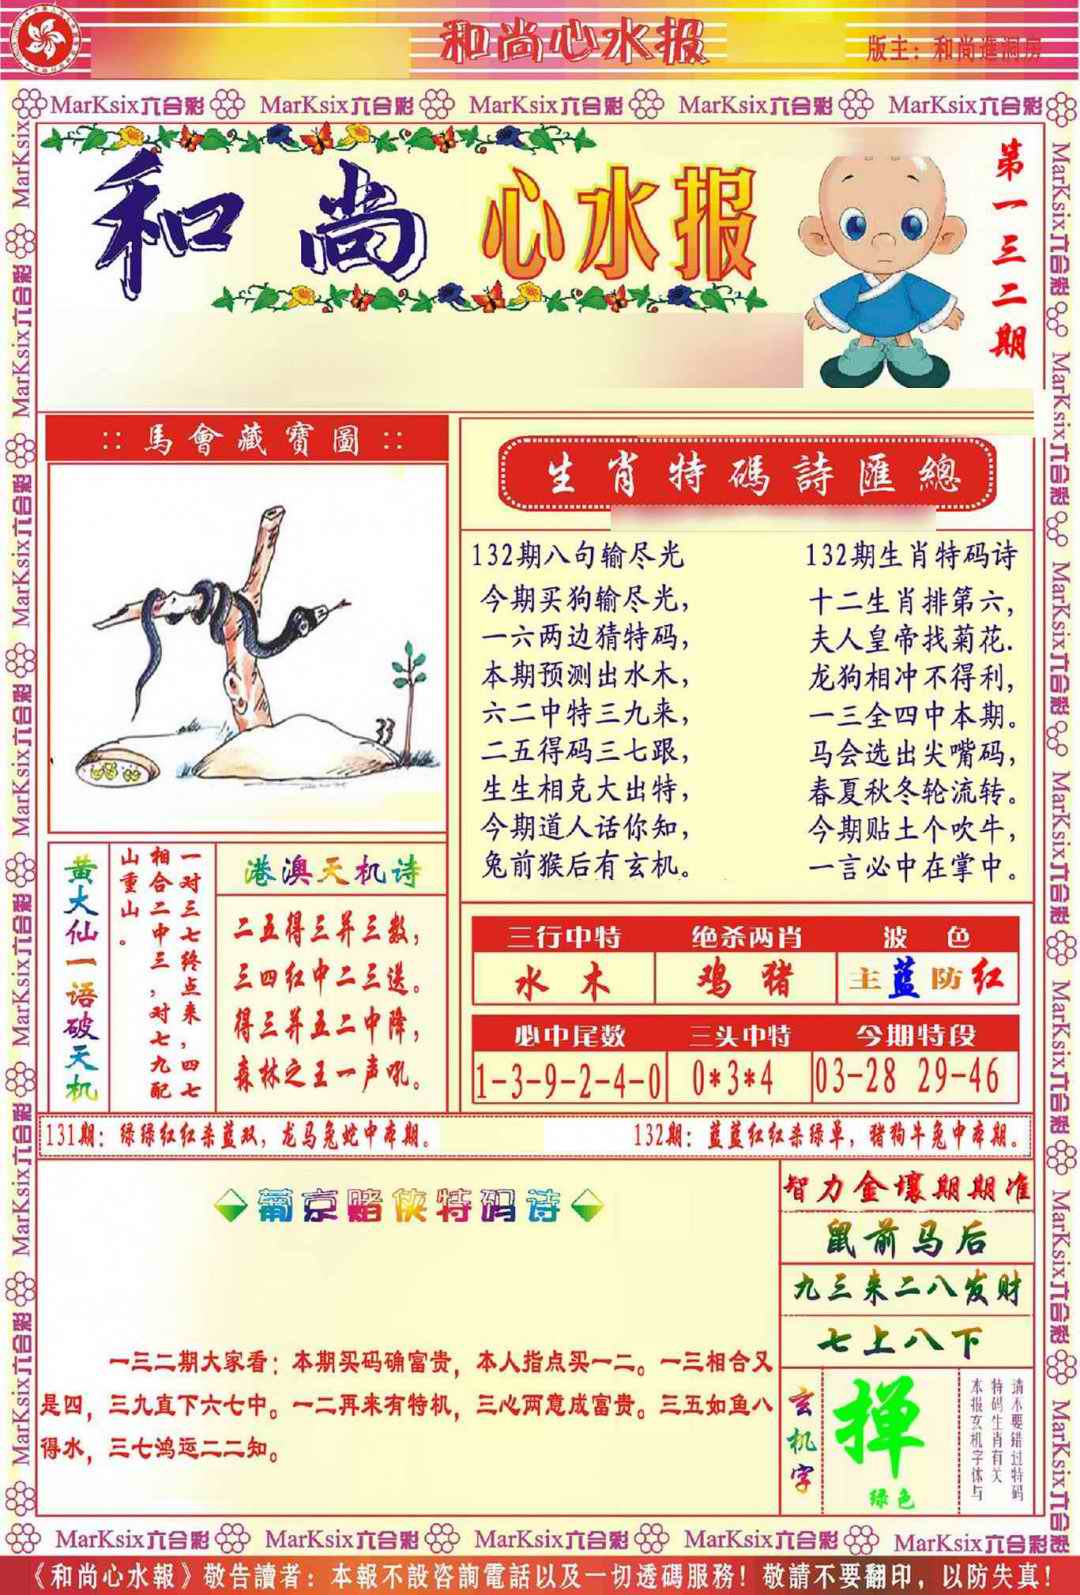 和尚心水报
版主：和尚進洞房
MarKsix六合彩 MarKsix六合彩 MarKsix六合彩 MarKsix六合彩 MarKsix六合彩
和尚心水报
第一三二期
::馬會藏寶圖::
33
黄大仙一语破天机
一对三七终点来，四七
相合二中三，对七九配
山重山。
港澳天机诗
二五得三并三数，
三四红中二三送。
得三并五二中降，
森林之王一声吼。
生肖特碼詩匯總
132期八句输尽光
今期买狗输尽光，
一六两边猜特码，
本期预测出水木，
六二中特三九来，
二五得码三七跟，
生生相克大出特，
今期道人话你知，
兔前猴后有玄机。
132期生肖特码诗
十二生肖排第六，
夫人皇帝找菊花.
龙狗相冲不得利，
一三全四中本期。
马会选出尖嘴码，
春夏秋冬轮流转。
今期贴士个吹牛，
一言必中在掌中。
三行中特 绝杀两肖 波色
水木 鸡猪 主蓝防红
必中尾数 三头中特 今期特段
1-3-9-2-4-0 0*3*4 03-28 29-46
131期：绿绿红红杀蓝双，龙马兔蛇中本期。 132期：蓝蓝红红杀绿单，猪狗牛兔中本期。
葡京赌侠特码诗
一三二期大家看：本期买码确富贵，本人指点买一二。一三相合又
是四，三九直下六七中。一二再来有特机，三心两意成富贵。三五如鱼八
得水，三七鸿运二二知。
智力金壤期期准
鼠前马后
九三来二八发财
七上八下
玄机字
掸
绿色
请不要错过特码
特码生肖有关
本报玄机字体与
MarKsix六合彩 MarKsix六合彩 MarKsix六合彩 MarKsix六合彩 MarKsix六合彩
《和尚心水報》敬告讀者：本報不設咨詢電話以及一切透碼服務！敬請不要翻印，以防失真！